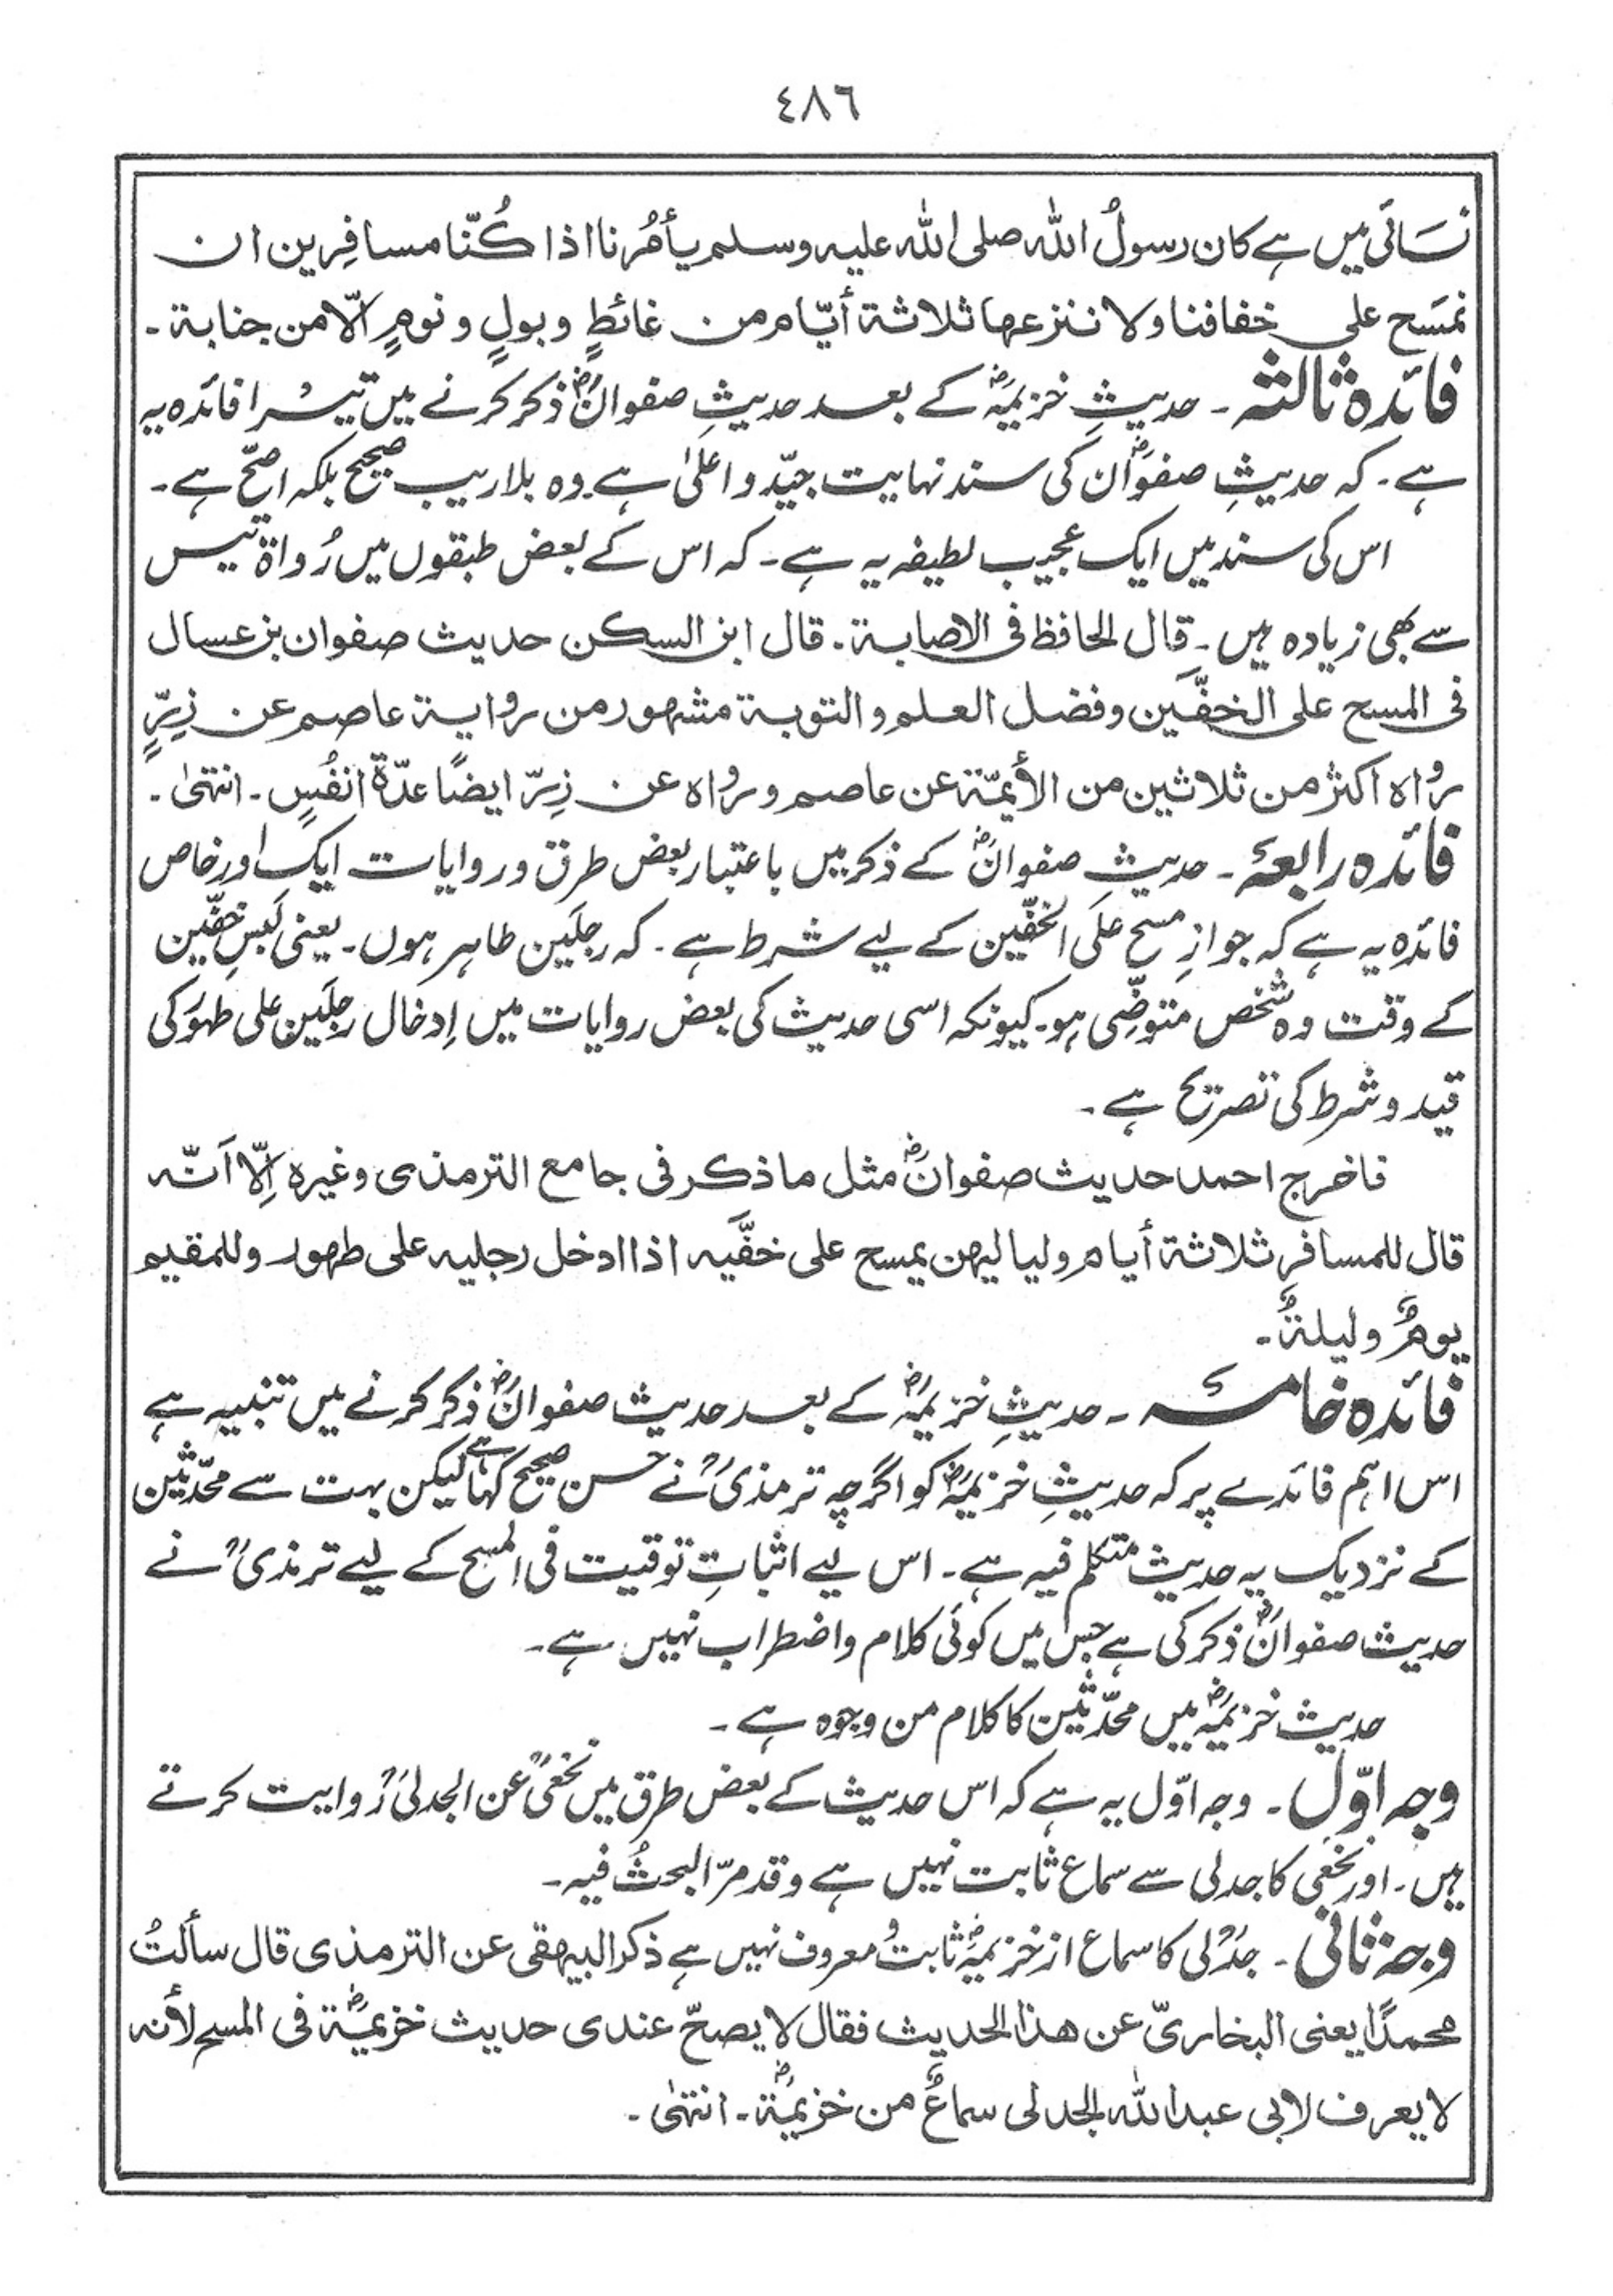 ٤٨٦
نَسَائی میں ہے کان رسولُ اللہ صلی اللہ علیہ وسلم یأمُرنا اذا کُنّا مسافِرین ان
نمسَح علی خفافنا ولا ننزعها ثلاثة أیّام من غائطٍ وبولٍ ونومٍ اِلّا من جنابة۔
فائدہ ثالثہ ۔ حدیثِ خزیمہؓ کے بعد حدیثِ صفوانؓ ذکر کرنے میں تیسرا فائدہ یہ
ہے۔ کہ حدیثِ صفوانؓ کی سند نہایت جیّد و اعلیٰ ہے۔ وہ بلا ریب صحیح بلکہ اصحّ ہے۔
اس کی سند میں ایک عجیب لطیفہ یہ ہے۔ کہ اس کے بعض طبقوں میں رُواۃ تیس
سے بھی زیادہ ہیں۔ قال الحافظ فی الاصابة۔ قال ابن السکن حدیث صفوان بن عسال
فی المسح علی الخفَّین وفضل العلم والتوبة مشہور من روایة عاصم عن زِرٍّ
رواہ اکثر من ثلاثین من الأیمّة عن عاصم ورواہ عن زِرّ ایضًا عدّۃ انفُسٍ۔ انتہٰی۔
فائدہ رابعہ ۔ حدیث صفوانؓ کے ذکر میں باعتبار بعض طرق و روایات ایک اور خاص
فائدہ یہ ہے کہ جوازِ مسح علَی الخفّین کے لیے شرط ہے۔ کہ رِجلَین طاہر ہوں۔ یعنی لُبسِ خفّین
کے وقت وہ شخص متوضّی ہو۔ کیونکہ اسی حدیث کی بعض روایات میں اِدخال رِجلَین علی طہور کی
قید و شرط کی تصریح ہے۔
فاخرج احمد حدیث صفوانؓ مثل ما ذکر فی جامع الترمذی وغیرہ اِلّا اَنّہ
قال للمسافرِ ثلاثة أیام ولیالیهن یمسح علی خفَّیه اذا ادخل رجلیه علی طهور وللمقیم
یومٌ ولیلةٌ۔
فائدہ خامسہ ۔ حدیثِ خزیمہؓ کے بعد حدیث صفوانؓ ذکر کرنے میں تنبیہ ہے
اس اہم فائدے پر کہ حدیثِ خزیمہؓ کو اگرچہ ترمذیؒ نے حسن صحیح کہا ہے لیکن بہت سے محدّثین
کے نزدیک یہ حدیث متکلم فیہ ہے۔ اس لیے اثباتِ توقیت فی المسح کے لیے ترمذیؒ نے
حدیث صفوانؓ ذکر کی ہے جس میں کوئی کلام و اضطراب نہیں ہے۔
حدیث خزیمہؓ میں محدّثین کا کلام من وجوہ ہے۔
وجہ اوّل ۔ وجہ اوّل یہ ہے کہ اس حدیث کے بعض طرق میں نخعیؒ عن الجدلیؒ روایت کرتے
ہیں۔ اور نخعی کا جدلی سے سماع ثابت نہیں ہے وقد مرّ البحثُ فیہ۔
وجہ ثانی ۔ جدلی کا سماع از خزیمہؓ ثابت و معروف نہیں ہے ذکر البیہقی عن الترمذی قال سألتُ
محمدًا یعنی البخاریّ عن هذا الحدیث فقال لا یصحّ عندی حدیث خزیمةؓ فی المسح لأنه
لا یعرف لابی عبد اللہ الجدلی سماعٌ من خزیمةؓ۔ انتہٰی۔